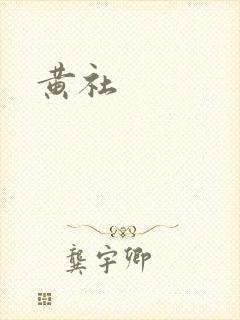 黄社
龚宇卿